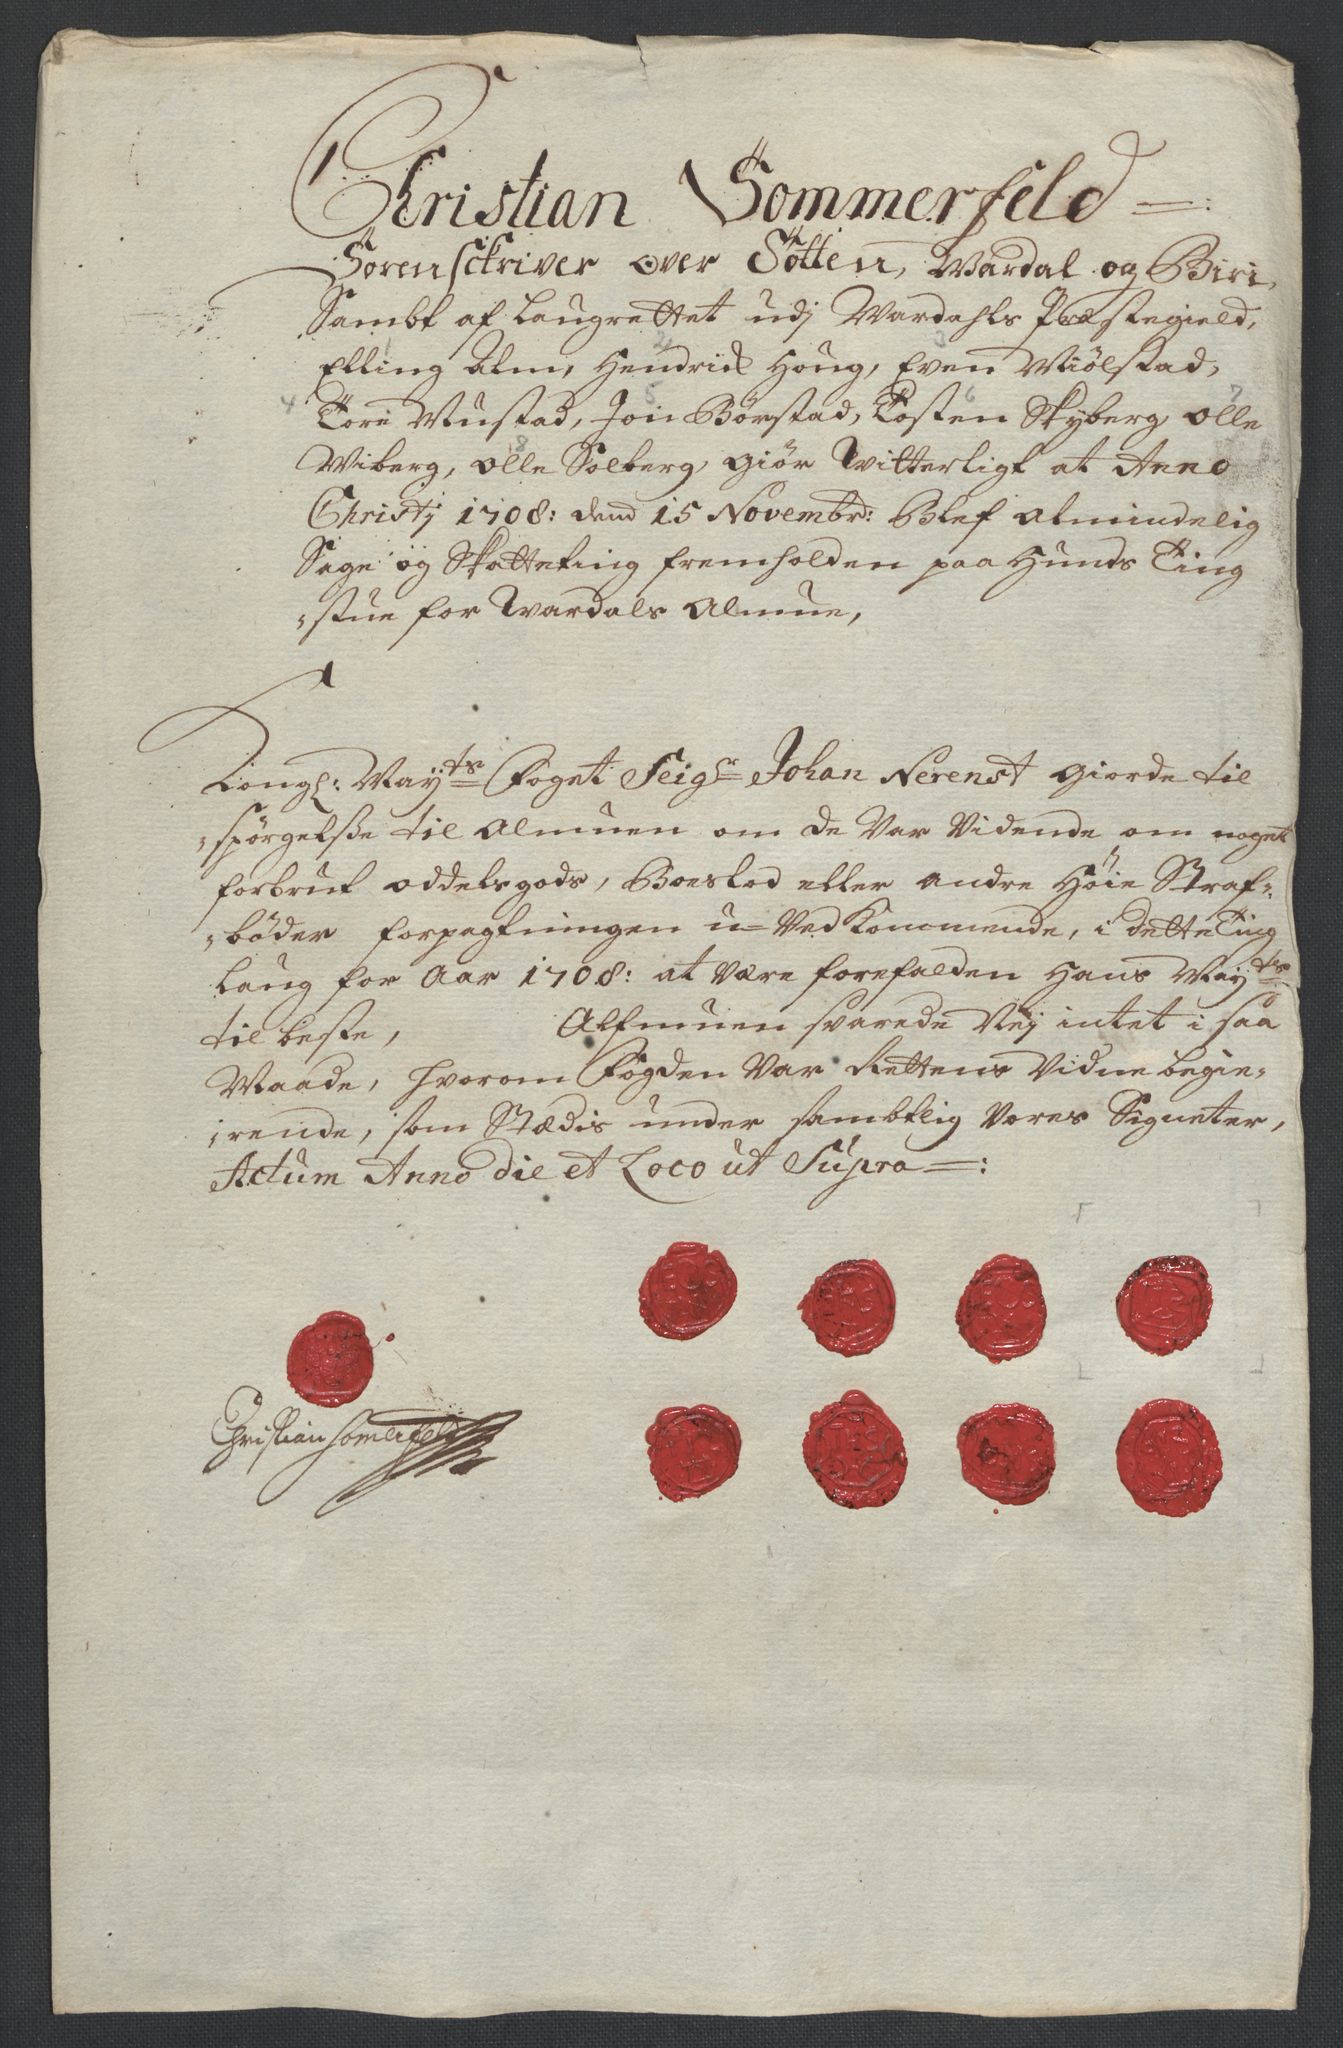 Christian Sommerfeld
Sorenschriver over Totten, Wardal og Biri,
Sambt af Laugrettet udj Wardahls Præstegield,
1 2 3
Elling Alm, Hendrich Houg, Even Miölstad,
4 5 6 7
Tore Mustad, Jon Börstad, Tosten Skyberg, Olle
8
Wiberg, Olle Solberg, giör Witterligt at Anno
Christj 1708: dend 15 Novembr: Blef almindelig
Sage og Skatteting fremholden paa Hunds Ting
stue for Wardals Almue,
Kongl: Mayts Foget Seigr Johan Nerenst giorde til
spörgelsse til Almuen om de Var Vidende om noget
forbrut oddelsgods, Boeslod eller andre Höie Straf-
böder forpagtningen u-Vedkommende, i dette Ting
laug for Aar 1708: at være forefalden Hans Mayts
til beste, Alfmuen svarede Nej intet i saa
Maade, hvorom Fogden Var Rettens Vidne begie-
rende, som Stædis under sambtlig Vores Signeter,
Actum Anno die et Loco ut Supra
Christian Somerfeldt